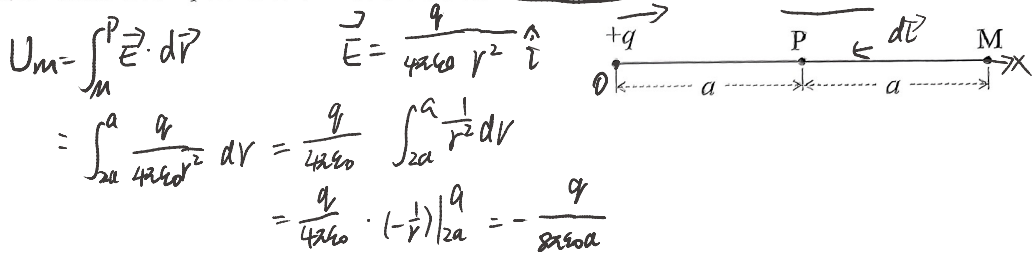 U_M = ∫_M^P E⃗ · dr⃗   E⃗ = q / (4πε₀ r²) î
= ∫_{2a}^a q / (4πε₀ r²) dr = q / (4πε₀) ∫_{2a}^a 1/r² dr
= q / (4πε₀) · (-1/r) |_{2a}^a = - q / (8πε₀a)
+q P dl⃗ M
O x
a a